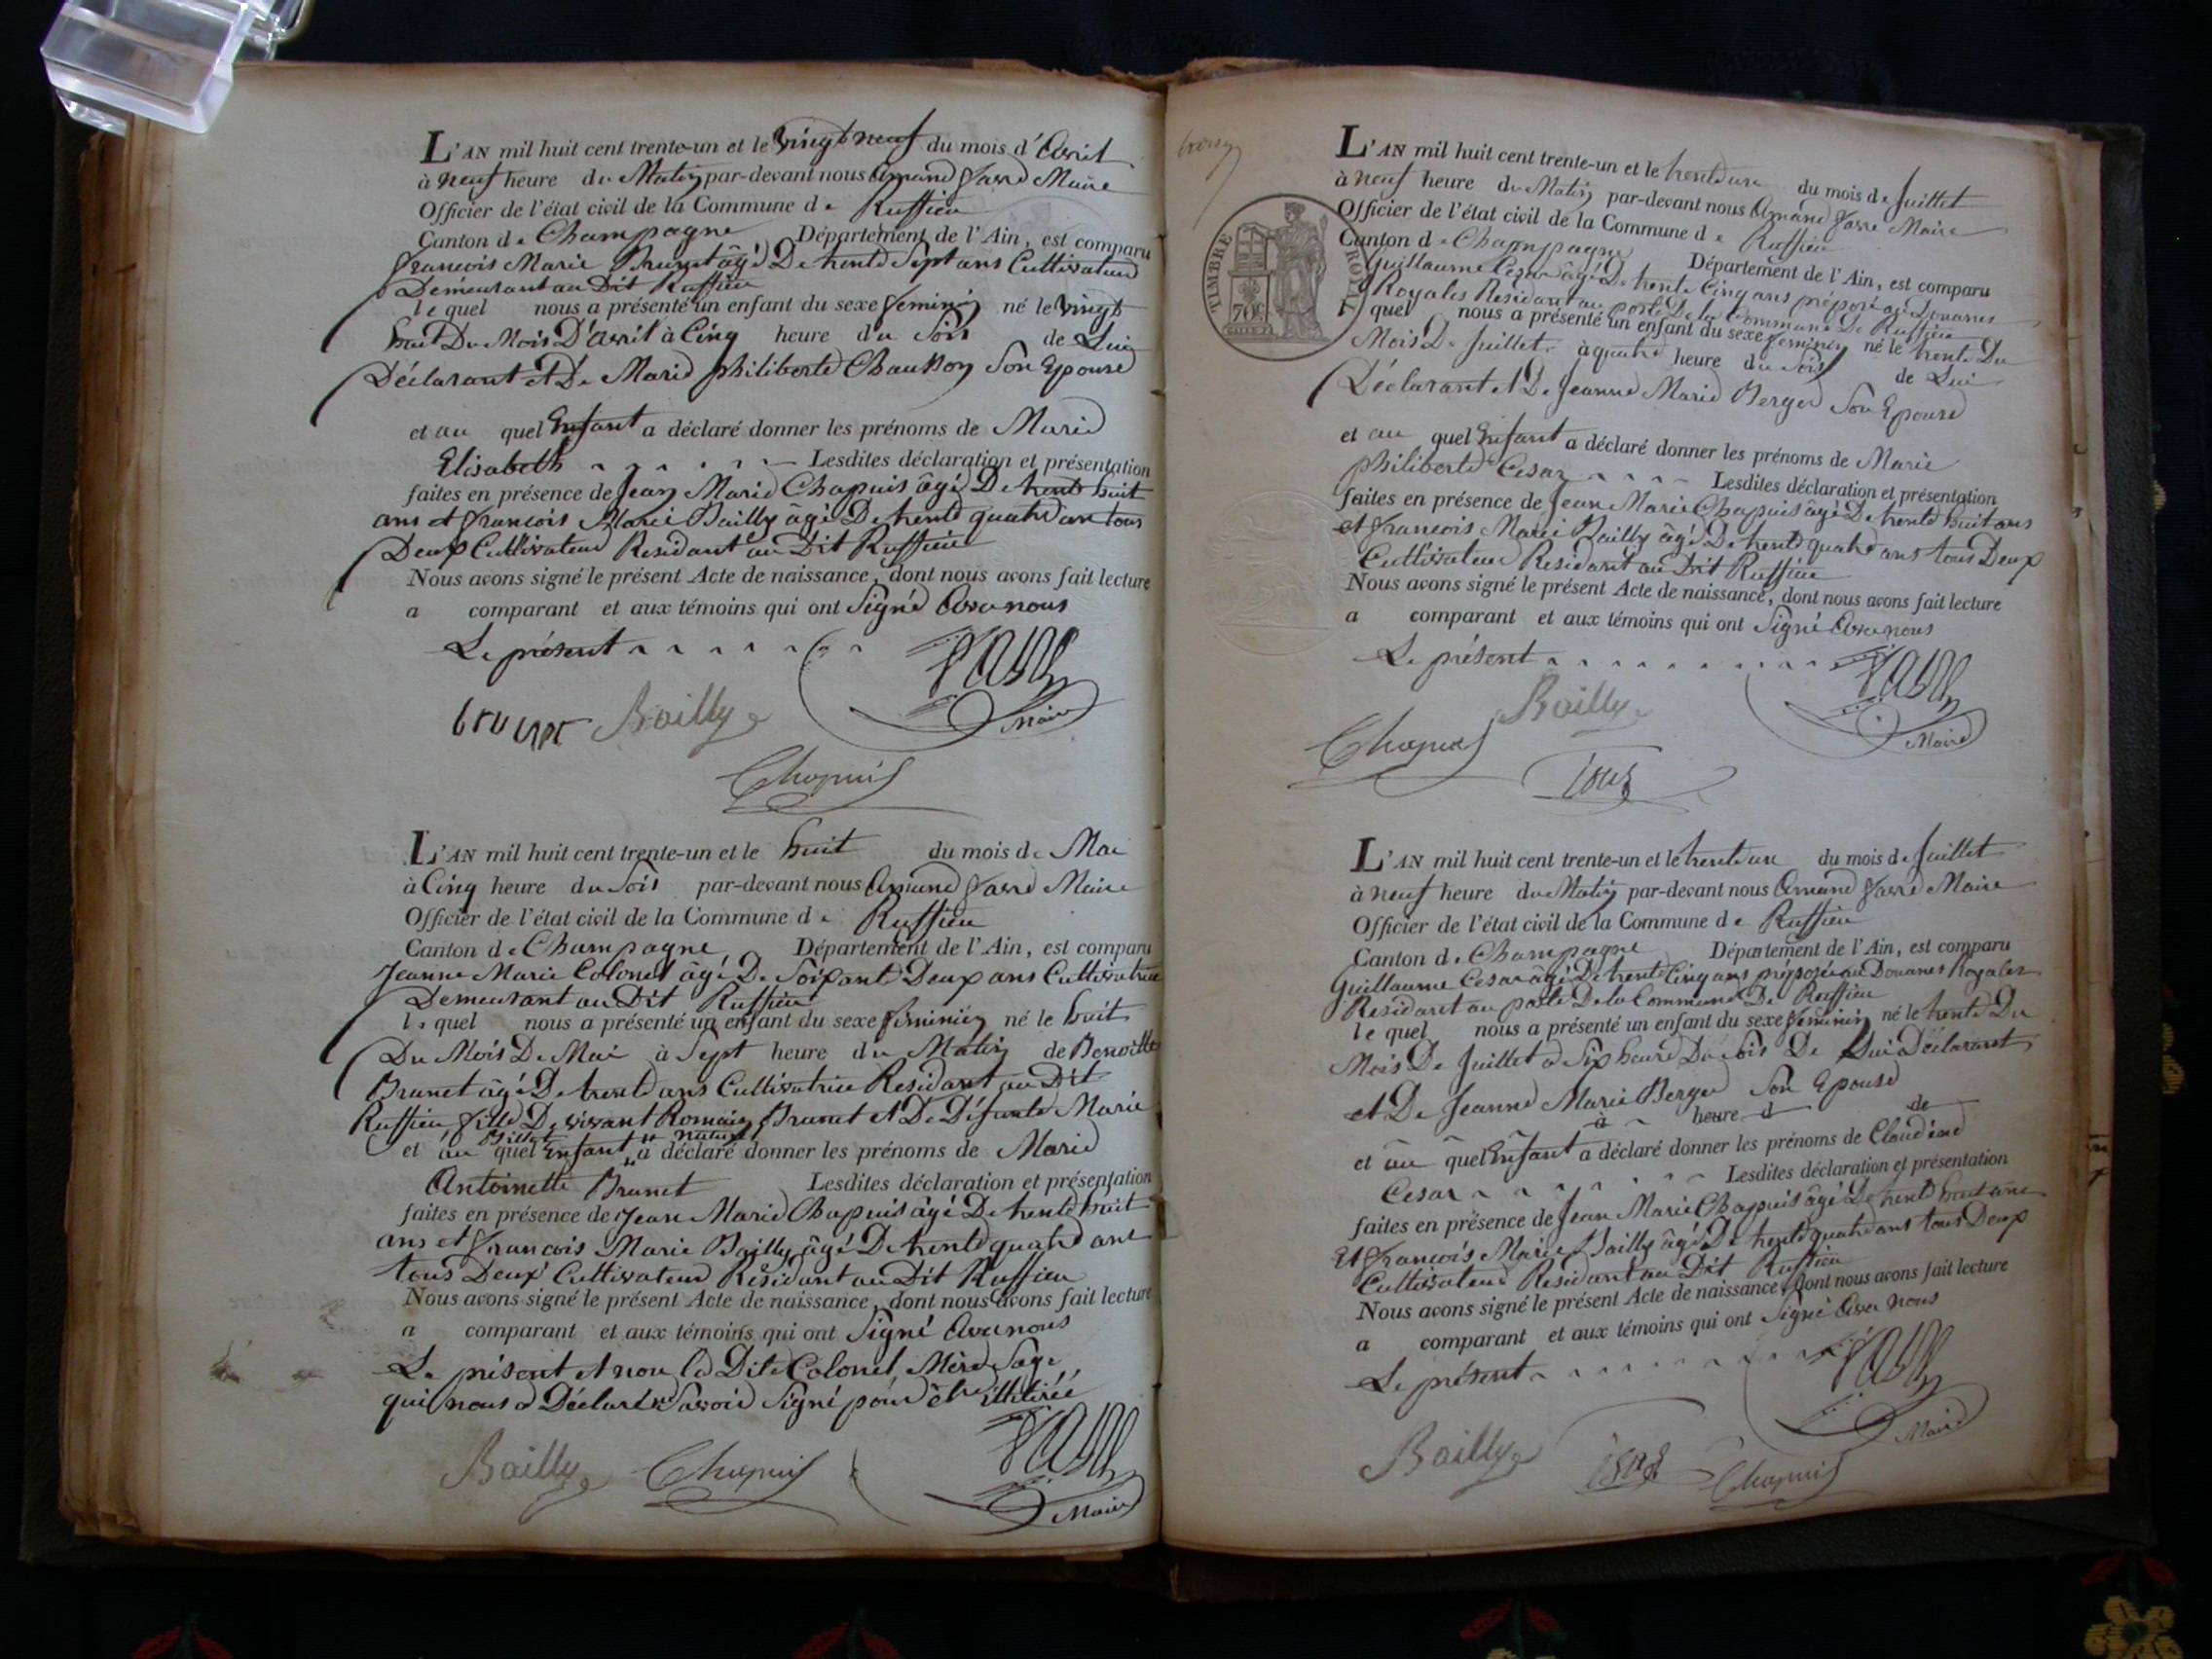 L'AN mil huit cent trente-un et le vingt neuf du mois d'Avril
à neuf heure du Matin par-devant nous Amand favre Maire
Officier de l'état civil de la Commune de Ruffieu
Canton de Champagne Département de l'Ain, est comparu
francois Marie Brunet âgé De trente Sept ans Cultivateur
Demeurant au Dit Ruffieu
le quel nous a présenté un enfant du sexe feminin né le vingt
huit Du Mois D'avril à Cinq heure du Soir de Lui
Déclarant et De Marie philiberte Chausson Son Epouse
et au quel Enfant a déclaré donner les prénoms de Marie
Elisabeth Lesdites déclaration et présentation
faites en présence de Jean Marie Chapuis âgé De trente huit
ans et francois Marie Bailly âgé De trente quatre ans tous
Deux Cultivateur Residant au Dit Ruffieu
Nous avons signé le présent Acte de naissance, dont nous avons fait lecture
a comparant et aux témoins qui ont Signé Avec nous
Le présent
brunet Bailly Maire
Chapuis
L'AN mil huit cent trente-un et le huit du mois de Mai
à Cinq heure du Soir par-devant nous Amand favre Maire
Officier de l'état civil de la Commune de Ruffieu
Canton de Champagne Département de l'Ain, est comparu
Jeanne Marie Colonel âgé De Soixante Deux ans Cultivatrice
Demeurant au Dit Ruffieu
le quel nous a présenté un enfant du sexe feminin né le huit
Du Mois De Mai à Sept heure du Matin de Benoitte
Brunet âgé De trente ans Cultivatrice Residant au Dit
Ruffieu fille De vivant Romain Brunet et De Défunte Marie
Billet naturel
et au quel Enfant a déclaré donner les prénoms de Marie
Antoinette Brunet Lesdites déclaration et présentation
faites en présence de Jean Marie Chapuis âgé De trente huit
ans et francois Marie Bailly âgé De trente quatre ans
tous Deux Cultivateur Résidant au Dit Ruffieu
Nous avons signé le présent Acte de naissance, dont nous avons fait lecture
a comparant et aux témoins qui ont Signé Avec nous
Le présent et non la Dite Colonel Mère Sage
qui nous a Déclaré ne Savoir Signé pour être illitiréé
Bailly Chapuis Maire
TIMBRE ROYAL
70c
L'AN mil huit cent trente-un et le trente un du mois de Juillet
à neuf heure du Matin par-devant nous Amand favre Maire
Officier de l'état civil de la Commune de Ruffieu
Canton de Champagne Département de l'Ain, est comparu
Guillaume Cesar âgé De trente Cinq ans préposé au Douanes
Royales Residant au poste De la Commune De Ruffieu
quel nous a présenté un enfant du sexe feminin né le trente Du
Mois De Juillet à quatre heure du Soir de Lui
Déclarant et De Jeanne Marie Berger Son Epouse
et au quel Enfant a déclaré donner les prénoms de Marie
philiberte Cesar Lesdites déclaration et présentation
faites en présence de Jean Marie Chapuis âgé De trente huit ans
et francois Marie Bailly âgé De trente quatre ans tous Deux
Cultivateur Residant au Dit Ruffieu
Nous avons signé le présent Acte de naissance, dont nous avons fait lecture
a comparant et aux témoins qui ont Signé Avec nous
Le présent
Bailly Maire
Chapuis
L'AN mil huit cent trente-un et le trente un du mois de Juillet
à neuf heure du Matin par-devant nous Amand favre Maire
Officier de l'état civil de la Commune de Ruffieu
Canton de Champagne Département de l'Ain, est comparu
Guillaume Cesar âgé De trente Cinq ans préposé au Douanes Royales
Residant au poste De la Commune De Ruffieu
le quel nous a présenté un enfant du sexe feminin né le trente Du
Mois De Juillet a Six heure Du Soir De Lui Déclarant
et De Jeanne Marie Berger Son Epouse
à heure d de
et au quel Enfant a déclaré donner les prénoms de Claudine
Cesar Lesdites déclaration et présentation
faites en présence de Jean Marie Chapuis âgé De trente huit ans
Et francois Marie Bailly âgé De trente quatre ans tous Deux
Cultivateur Residant au Dit Ruffieu
Nous avons signé le présent Acte de naissance, dont nous avons fait lecture
a comparant et aux témoins qui ont Signé Avec nous
Le présent
Maire
Bailly Chapuis